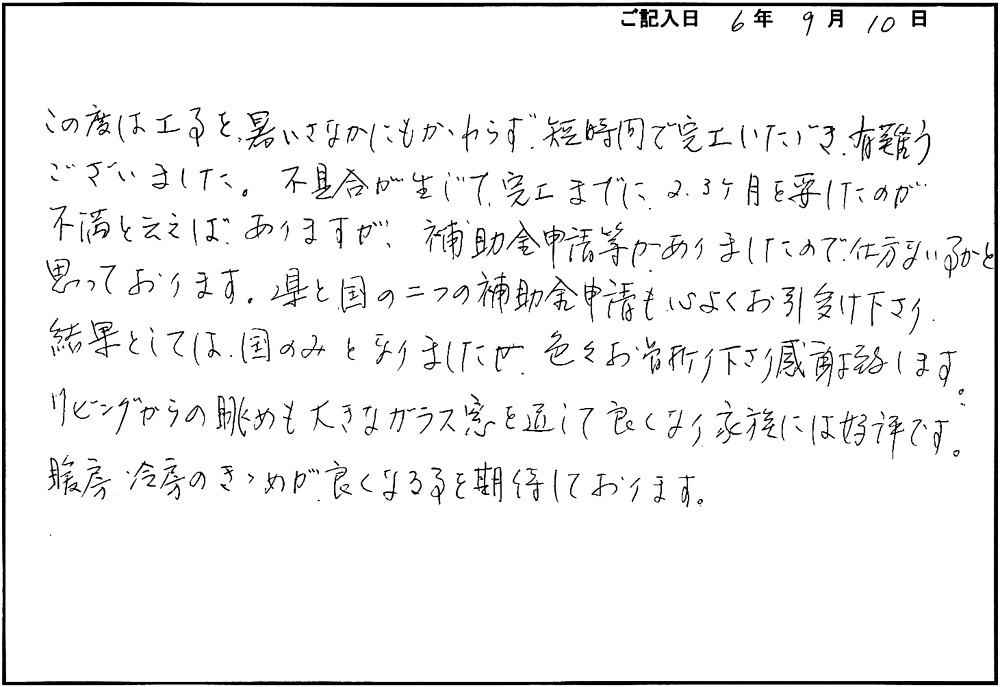 ご記入日 6年 9月 10日
この度は工事を、暑いさなかにもかゝわらず、短時間で完工いたゞき、有難う
ございました。不具合が生じて、完工までに、2.3ケ月を要したのが
不満と云えば、ありますが、補助金申請等がありましたので、仕方ない事かと
思っております。県と国の二つの補助金申請も心よくお引受け下さり、
結果としては、国のみとなりましたが、色々お骨折り下さり感謝致します。
リビングからの眺めも大きなガラス窓を通して良くなり、家族には好評です。
暖房、冷房のきゝめが、良くなる事を期待しております。